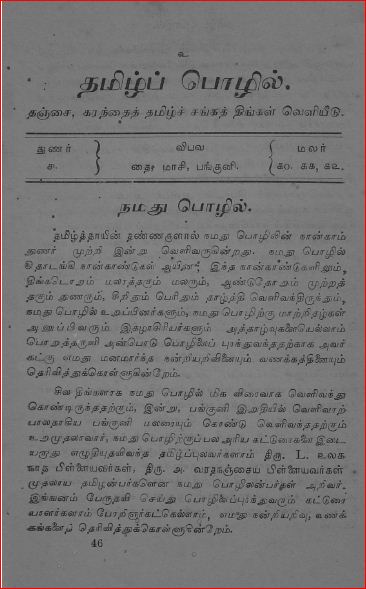 உ
தமிழ்ப் பொழில்.
தஞ்சை, கரந்தைத் தமிழ்ச் சங்கத் திங்கள் வெளியீடு.
துணர் } விபவ { மலர்
௪. } தை, மாசி, பங்குனி. { ௧௦, ௧௧, ௧௨.
நமது பொழில்.
தமிழ்த்தாயின் தண்ணளியால் நமது பொழிலின் நான்காம்
துணர் முற்றி இன்று வெளிவருகின்றது. நமது பொழில்
தொடங்கி நான்காண்டுகள் ஆயின; இந்த நான்காண்டுகளிலும்,
திங்கடொறும் மலரத்தகும் மலரும், ஆண்டுதொறும் முற்றத்
தகும் துணரும், சிறிதும் பெரிதும் தாழ்த்தி வெளிவந்திருந்தும்,
நமது பொழில் உறுப்பினர்களும், நமது பொழிற்கு மாற்றிதழ்கள்
அனுப்பிவரும் இதழாசிரியர்களும் அத்தாழ்வுகளையெல்லாம்
பொறுத்தருளி அன்பொடு பொழிலைப் புரந்துவந்ததற்காக அவர்
கட்கு எமது மனமார்ந்த நன்றியறிவினையும் வணக்கத்தினையும்
தெரிவித்துக்கொள்ளுகின்றேம்.
சில திங்களாக நமது பொழில் மிக விரைவாக வெளிவந்து
கொண்டிருந்ததற்கும், இன்று, பங்குனி இறுதியில் வெளிவரற்
பாலதாகிய பங்குனி மலரையும் கொண்டு வெளிவந்ததற்கும்
உறுமுதலாவார், நமது பொழிற்குப் பல அரிய கட்டுரைகளை இடை
யறாது எழுதியுதவிவந்த தமிழ்ப்புலவர்களாம் திரு. L. உலக
நாத பிள்ளையவர்கள், திரு. அ. வரதநஞ்சைய பிள்ளையவர்கள்
முதலாய தமிழன்பர்களென நமது பொழிலன்பர்கள் அறிவர்.
இங்ஙனம் பேருதவி செய்து பொழிலைப்புரந்துவரும் கட்டுரை
யாளர்களாம் பேரறிஞர்கட்கெல்லாம், எமது நன்றியறிவு, வணக்
கங்களைத் தெரிவித்துக்கொள்ளுகின்றேம்.
46